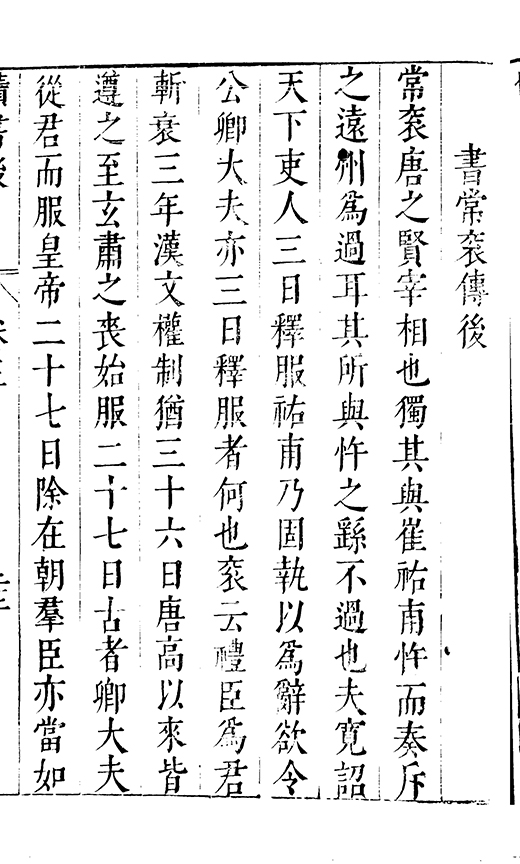 書常袞傳後
常袞唐之賢宰相也獨其與崔祐甫忤而奏斥
之遠州爲過耳其所與忤之繇不過也夫寬詔
天下吏人三日釋服祐甫乃固執以爲辭欲令
公卿大夫亦三日釋服者何也袞云禮臣爲君
斬衰三年漢文權制猶三十六日唐高以來皆
遵之至玄肅之喪始服二十七日古者卿大夫
從君而服皇帝二十七日除在朝羣臣亦當如
讀書後